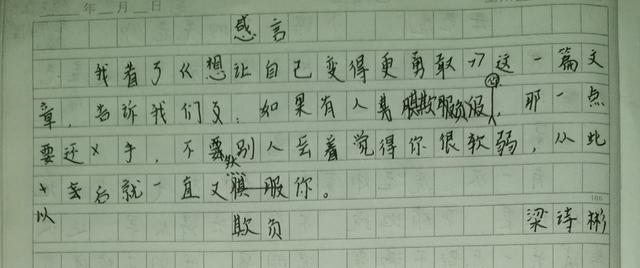 年 月 日
感言
我看了《想让自己变得更勇敢》这一篇文
章，告诉我们：如果有人欺负，那一点
要还手，不要别人看着觉得你很软弱，从此
以后就一直又欺负你。
梁诗彬